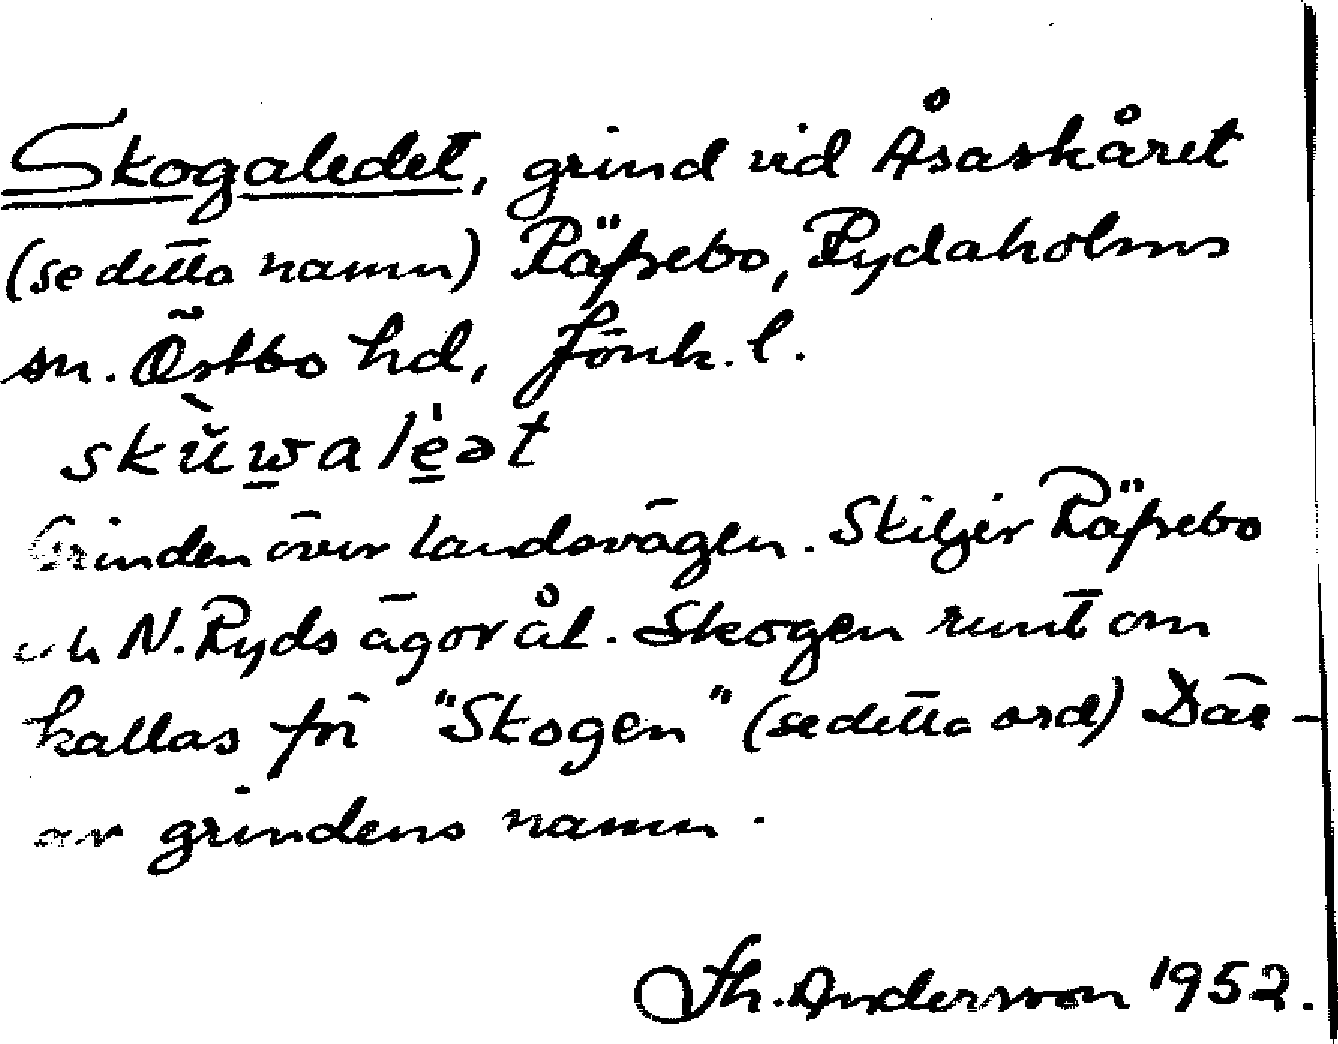 Skogaledet, grind vid Åsaskåret
(se detta namn) Räfsebo, Rydaholms
sn. Östbo hd, Jönk. l.
skùwaléət
Grinden över landsvägen. Skiljer Räfsebo
och N. Ryds ägor åt. Skogen runt om
kallas för "Skogen" (se detta ord) Där-
av grindens namn.
Th. Andersson 1952.